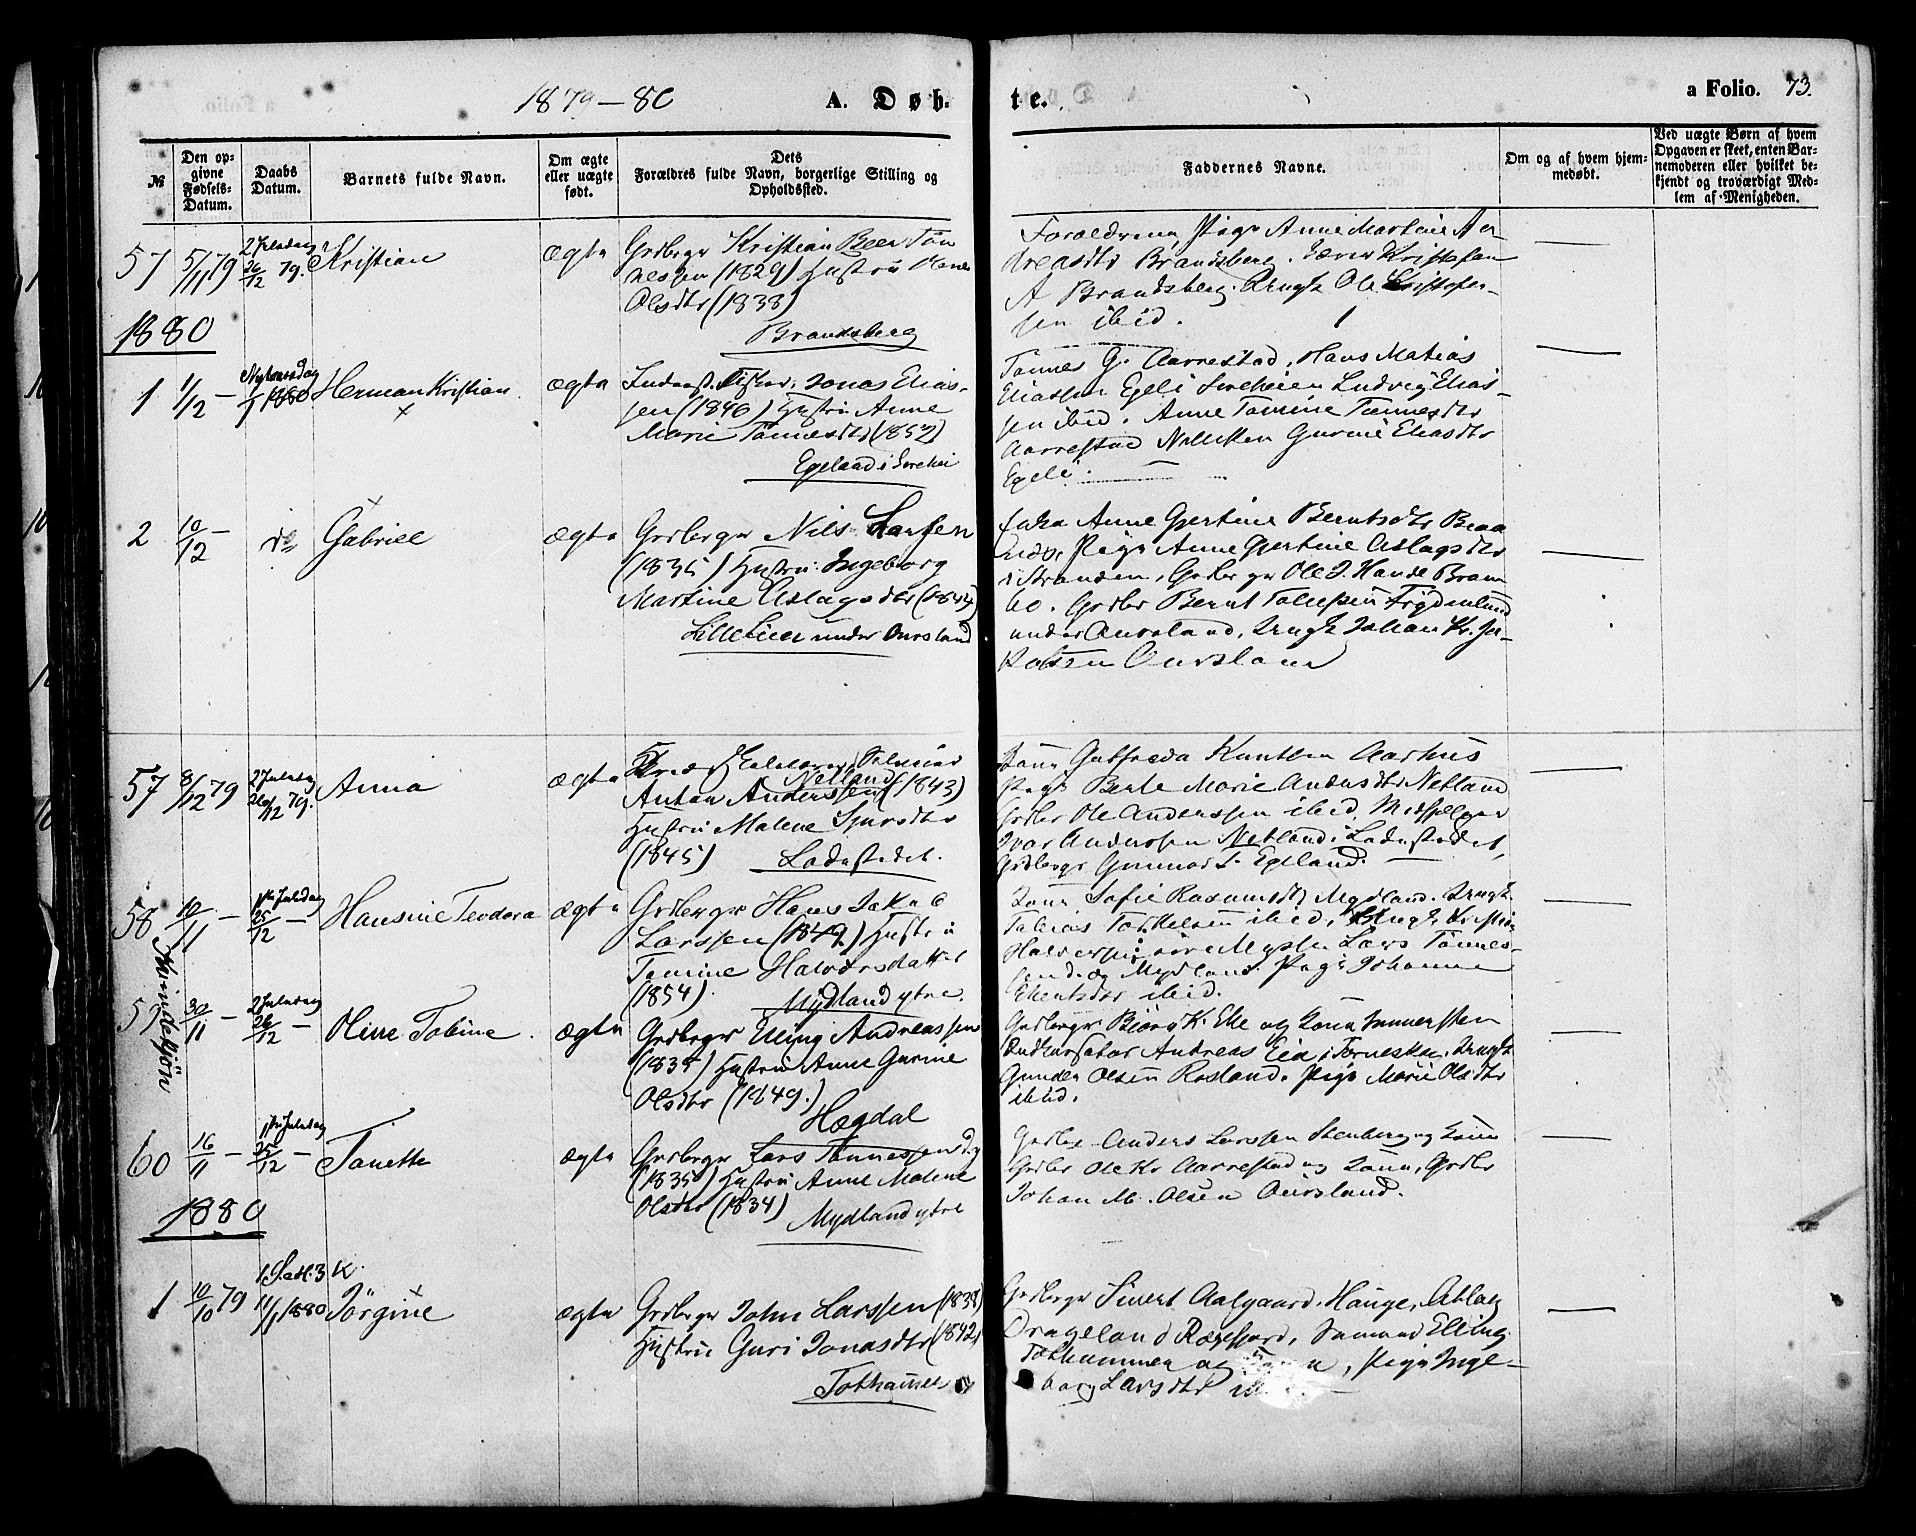 1879-80
A. Døb-
te.
a Folio. 73.
№
Den op-
givne
Fødsels-
Datum.
Daabs
Datum.
Barnets fulde Navn.
Om ægte
eller uægte
født.
Dets
Forældres fulde Navn, borgerlige Stilling og
Opholdssted.
Faddernes Navne.
Om og af hvem hjem-
medøbt.
Ved uægte Børn af hvem
Opgaven er skeet, enten Bar-
nemoderen eller hvilket be-
kjendt og troværdigt Med-
lem af Menigheden.
57 5/11 79 2 Juledag 26/12 79. Kristian ægte
Grdbrgr Kristian Beer Tøn
nessen (1829) Hustru
Olsdtr (1838)
Brandsberg
Forældrene, Pige Anne Martine An
dreasdtr Brandsberg. Kristofersen
A Brandsberg. Ungk Ole Kristofer-
sen ibid.
1880
1 1/12 - Nytaarsdag 1/1 1880 Herman Kristian ægte
Inderst, Fisker, Jonas Elias-
sen (1846) Hustru Anne
Marie Tønnesdtr (1852)
Egeland i Sirehei
Tønnes G. Aarrestad, Hans Matias
Eliassen Egeli Sireheien Ludvig Elias-
sen ibid. Anne Tomine Tønnesdtr
Aarrestad Gurine Eliasdtr
Egeli.
2 10/12 - do Gabriel ægte
Grdbrgr Nils Larsen
(1835) Hustru Ingeborg
Martine Aslagsdtr (1844)
Lillelien under Ousland
Anne Gjertine Berntsdtr
Pige Anne Gjertine Aslagsdtr
i Stranden, Grdbrgr Ole J. Haude
bo. Grdbr Bernt Tollefsen Frydenlund
under Ousland, Ungk Johan Kr. Ja-
kobsen Ousland
57 8/12 79 2 Juledag 26/12 79. Anna ægte
Netland
Anton Anderssen (1843)
Hustru Malene Sjursdtr
(1845) Ladestedet.
Kone Knutsen Aarhus
Pige Berte Marie Andersdtr Netland
Grdbr Ole Anderssen ibid,
Ivar Anderssen Netland i Ladestedet,
Grdbrgr Gunnar S. Egeland.
58 10/11 - 1ste Juledag 25/12 - Hansine Teodora ægte
Grdbrgr Hans Jakob
Larssen (1849) Hustru
Tomine Halvorsdatter
(1854). Mydland ytre.
Kone Sofie Rasmusdtr Mydland. Ungk.
Tobias Torkelsen ibid, Ungk Kristian
Lars Tønnes-
sen Mydland. Pige Johanne
ibid.
59 30/11 - 2 Juledag 26/12 - Oline Tobine ægte
Kvindesjön
Grdbrgr Elling Andreassen
(1835) Hustru Anne Gurine
Olsdtr (1849.)
Hægdal
Grdbrgr Bjørn K. Eke og Kone
Andreas Eia i Ungk
Gunder Olsen Rosland. Pige Marie Olsdtr
ibid.
60 16/11 - 1ste Juledag 25/12 - Tonette ægte
Grdbrgr Lars Tønnessen
(1835) Hustru Anne Malene
Olsdtr (1834) Mydland ytre
Grdbr Anders Larssen Stenberg og Kone
Grdbr Ole Kr Aarrestad og Kone, Grdbr
Johan M. Olsen Ousland.
1880
1 10/10 79 1 S.e.H.3K. 11/1 1880 Jørgine ægte
Grdbrgr John Larssen (1838)
Hustru Guri Jonasdtr (1842)
Tothammer
Grdbrgr Sivert Aalgaard, Hauge, Aslag
Drageland Rægefjord, Elling
Tothammer og Kone, Pige Inge-
borg Larsdtr